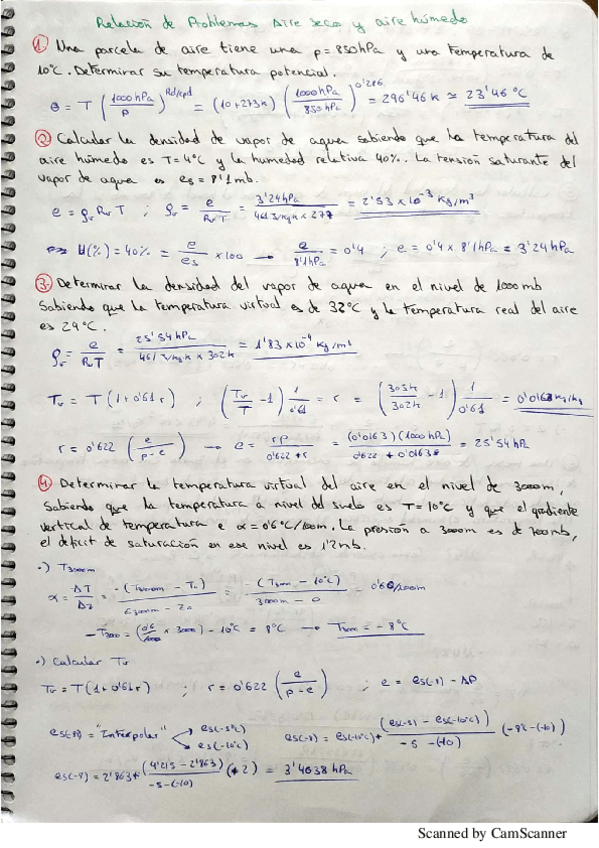 Relación de Problemas Aire seco y aire húmedo
1. Una parcela de aire tiene una p = 850 hPa y una temperatura de
10°C. Determinar su temperatura potencial.
θ = T (1000 hPa / p)^Rd/cpd = (10+273K) (1000 hPa / 850 hPa)^0'286 = 296'46 K ≃ 23'46 °C
2. Calcular la densidad de vapor de agua sabiendo que la temperatura del
aire húmedo es T = 4°C y la humedad relativa 40%. La tensión saturante del
vapor de agua es es = 8'1 mb.
e = ρv Rv T ; ρv = e / RvT = 3'24 hPa / 461 J/kgK × 277 = 2'53 × 10^-3 Kg/m³
H(%) = 40% = e/es × 100 → e / 8'1 hPa = 0'4 ; e = 0'4 × 8'1 hPa = 3'24 hPa
3. Determinar la densidad del vapor de agua en el nivel de 1000 mb
Sabiendo que la temperatura virtual es de 32°C y la temperatura real del aire
es 29°C.
ρv = e / RvT = 25'54 hPa / 461 J/kgK × 302K = 1'83 × 10^-4 Kg/m³
Tv = T(1+0'61r) ; (Tv/T - 1) 1/0'61 = r = (305K/302K - 1) 1/0'61 = 0'0163 Kg/Kg
r = 0'622 (e / p-e) → e = rp / 0'622+r = (0'0163)(1000 hPa) / 0'622 + 0'0163 = 25'54 hPa
4. Determinar la temperatura virtual del aire en el nivel de 3000m,
Sabiendo que la temperatura a nivel del suelo es T = 10°C y que el gradiente
vertical de temperatura e α = 0'6°C/100m. La presión a 3000m es de 700mb,
el déficit de saturación en ese nivel es 1'2mb.
·) T3000m
α = ΔT/Δz = -(T3000m - T0) / 3000m - z0 = -(T3000 - 10°C) / 3000m - 0 = 0'6°C/100m
-T3000 = (0'6/100 × 3000) - 10°C = 8°C → T3000 = -8°C
·) Calcular Tv
Tv = T(1+0'61r) ; r = 0'622 (e / p-e) ; e = es(-8) - ΔP
es(-8) = "Interpolar" es(-5°C) es(-10°C) es(-8) = es(-10°C) + (es(-5) - es(-10°C)) / -5 - (-10) (-8 - (-10))
es(-8) = 2'863 + (4'215 - 2'863) / -5 - (-10) (+2) = 3'4038 hPa
Scanned by CamScanner